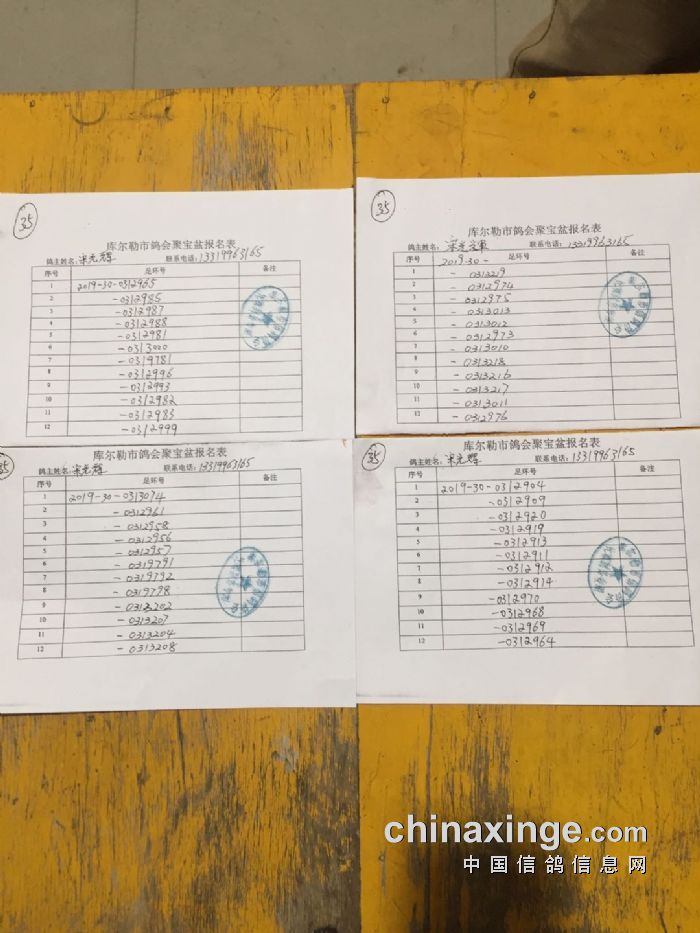 35
库尔勒市鸽会聚宝盆报名表
鸽主姓名: 宋光辉 联系电话: 13319963165
序号 足环号 备注
1 2019-30-0312965
2 -0312985
3 -0312987
4 -0312988
5 -0312981
6 -0313020
7 -0319781
8 -0312996
9 -0312993
10 -0312982
11 -0312983
12 -0312999
35
库尔勒市鸽会聚宝盆报名表
鸽主姓名: 联系电话: 13319963165
序号 足环号 备注
1 2019-30-
2 -0313219
3 -0312974
4 -0312975
5 -0313013
6 -0313012
7 -0312973
8 -0313010
9 -0313218
10 -0313216
11 -0313217
12 -0313011
-0312976
35
库尔勒市鸽会聚宝盆报名表
鸽主姓名: 宋光辉 联系电话: 13319963165
序号 足环号 备注
1 2019-30-0313074
2 -0312961
3 -0312958
4 -0312956
5 -0312957
6 -0319791
7 -0319792
8 -0319798
9 -0313202
10 -0313207
11 -0313204
12 -0313208
35
库尔勒市鸽会聚宝盆报名表
鸽主姓名: 宋光辉 联系电话: 13319963165
序号 足环号 备注
1 2019-30-0312904
2 -0312909
3 -0312920
4 -0312919
5 -0312913
6 -0312911
7 -0312912
8 -0312914
9 -0312970
10 -0312968
11 -0312969
12 -0312964
chinaxinge.com
中国信鸽信息网